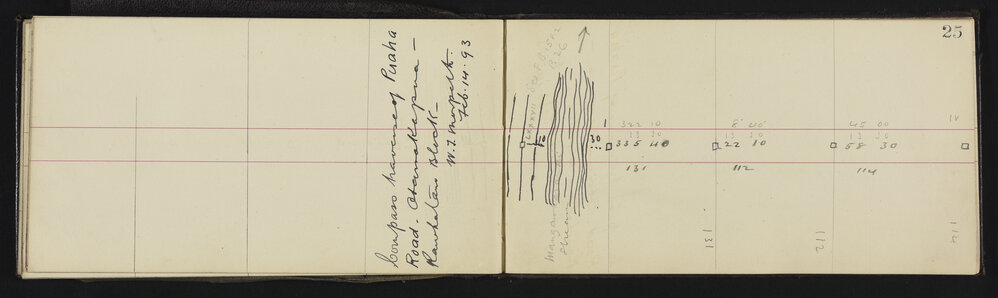 Compass traverse of Puaha
Road. Otamakapua –
Rauhatau Block –
W. T. Morpeth.
Feb. 14. 93
25
LXXXVII
P. 26
30
Stream
I
322 10
13 30
335 40
131
131
8 40
13 30
22 10
112
112
45 00
13 30
58 30
114
114
IV